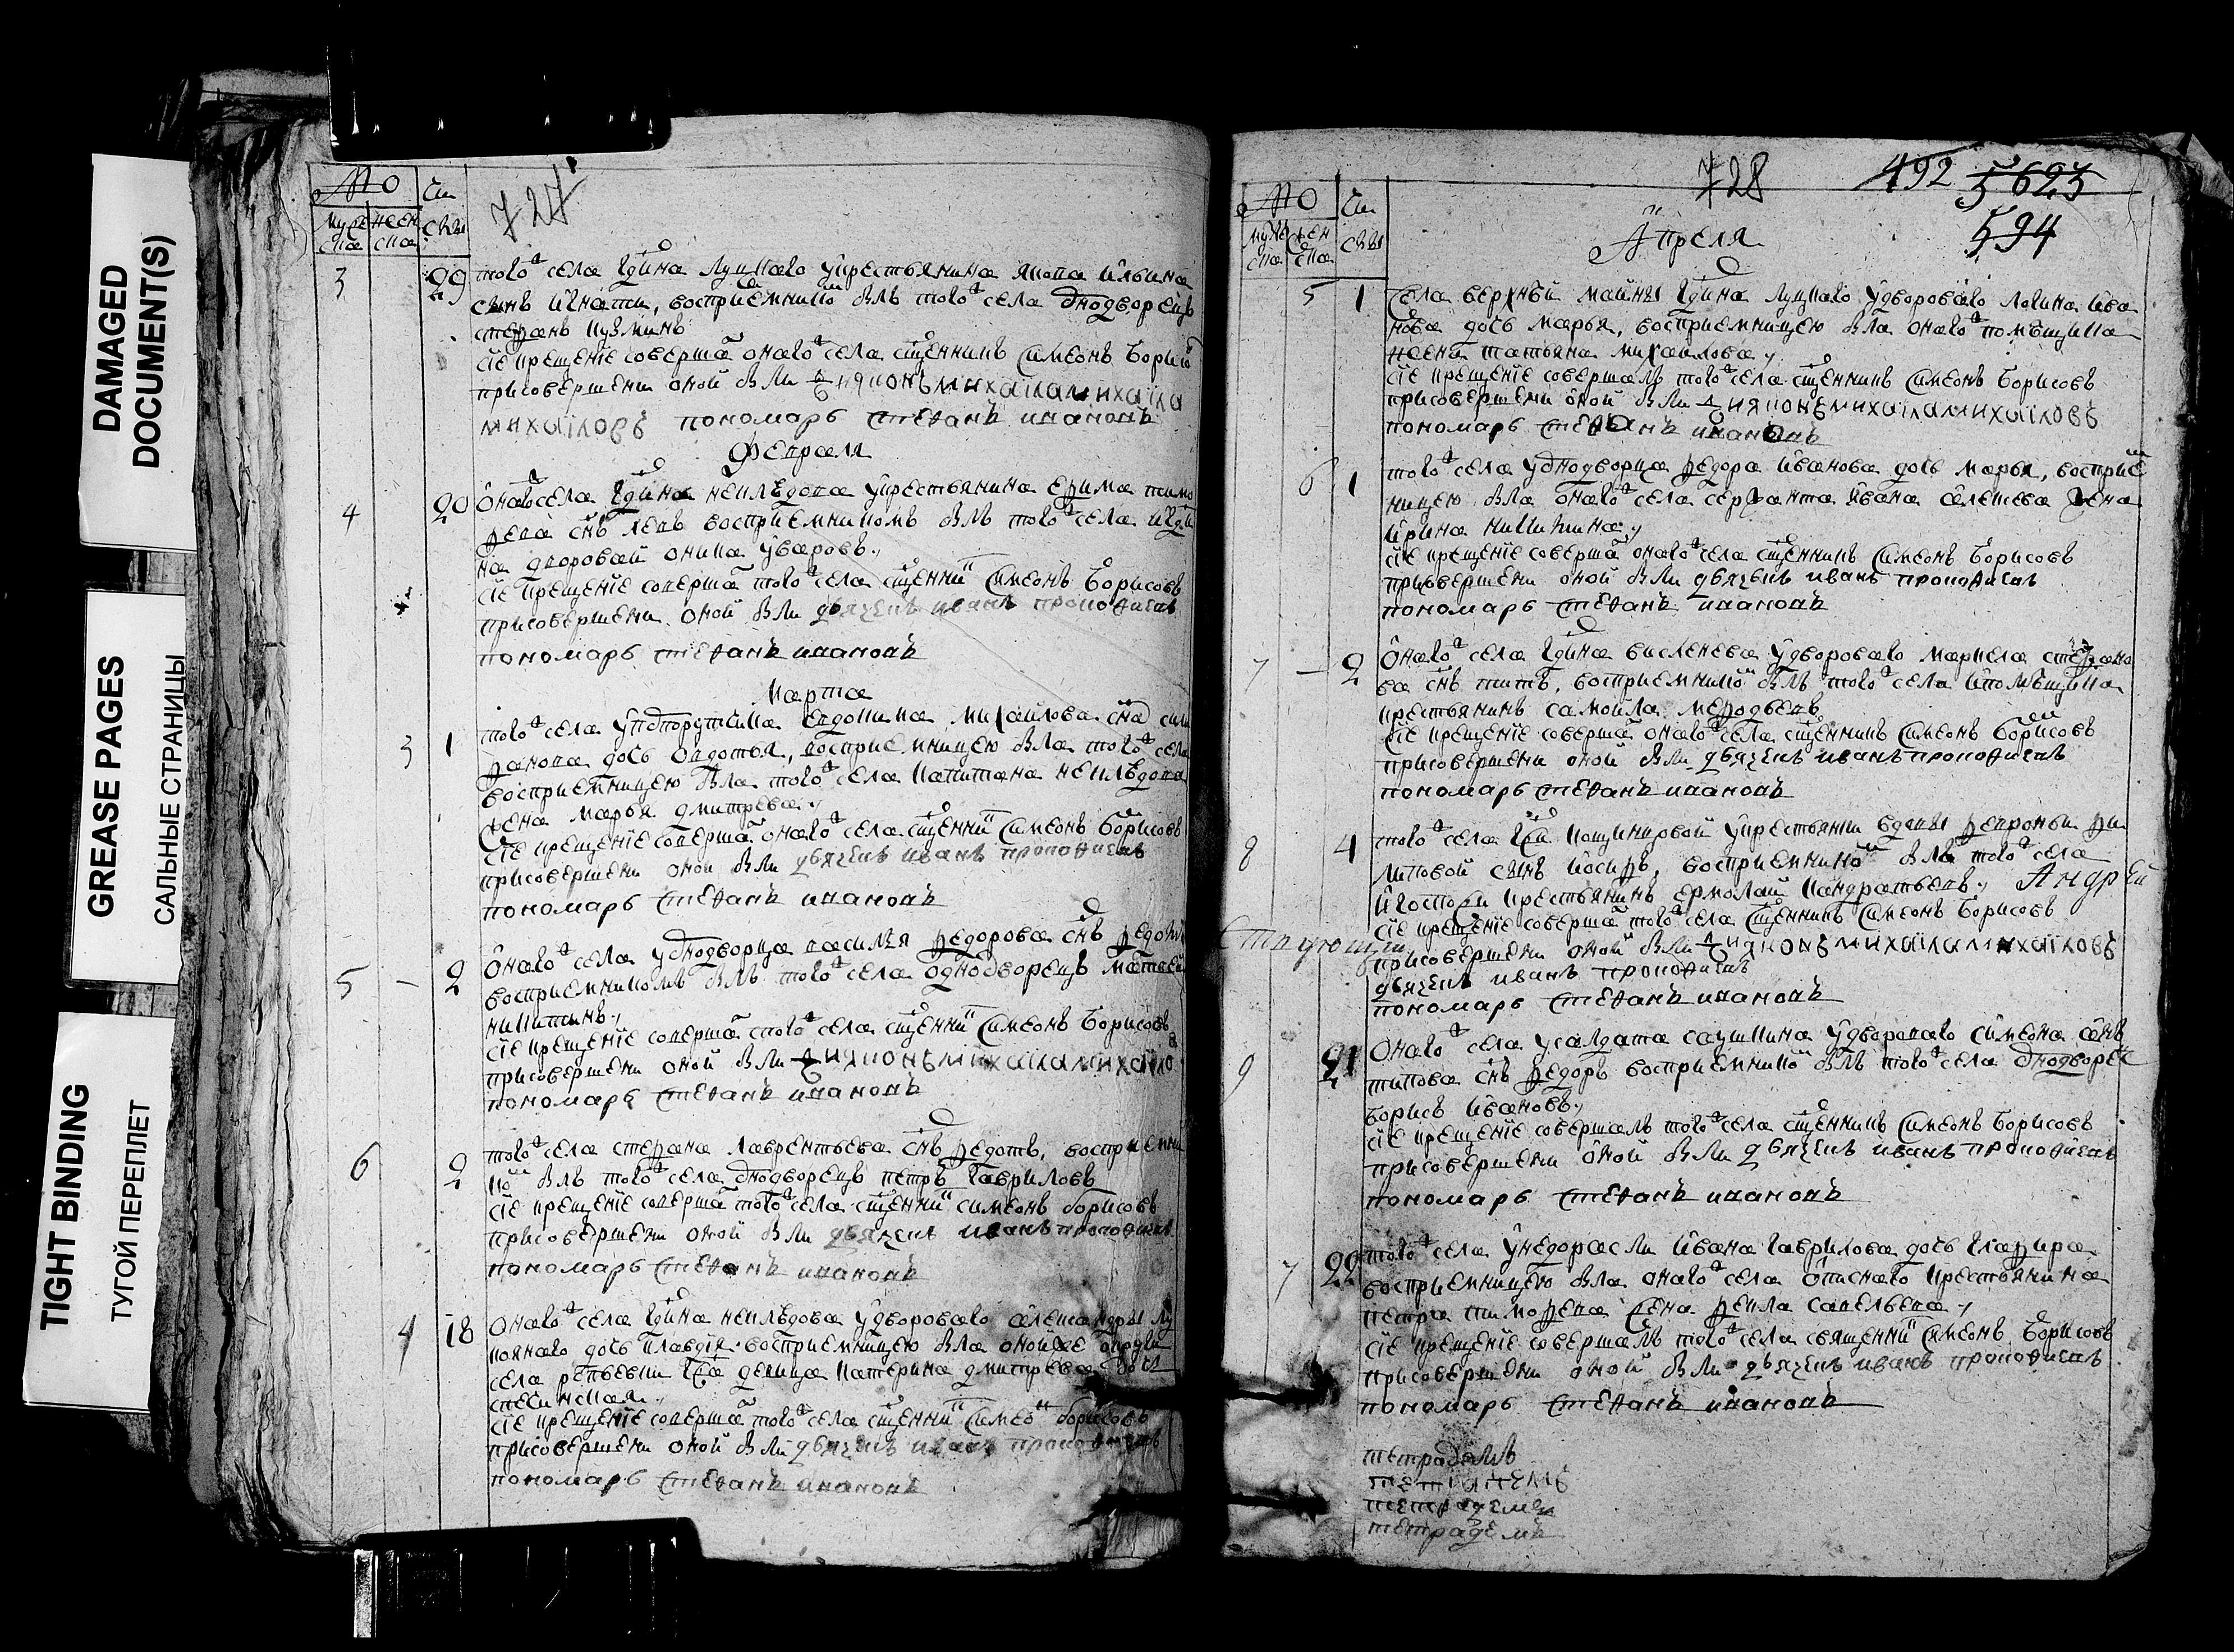 DAMAGED
DOCUMENT(S)
GREASE PAGES
САЛЬНЫЕ СТРАНИЦЫ
TIGHT BINDING
ТУГОЙ ПЕРЕПЛЕТ
№ Чи
муже жен сла
ска ска
727
3 29 того села гдина луцкаго укрестьянина якова ильина
сынъ игнати, восприемникомъ былъ того села однодворецъ
стефанъ кузминъ
сие крещение соверша онаго села сщенникъ симеонъ борисо
присовершени оной были дияконъ михаила михаила
михаиловъ пономарь стефанъ ивановъ
февраля
4 20 онаго села гдина неклюдова укрестьянина ефима тимо
феева снъ левъ восприемникомъ былъ того села
на дворовай оника уваровъ
сие крещение соверша того села сщенни симеонъ борисовъ
присовершени оной были дьячекъ иванъ прокофиевъ
пономарь стефанъ ивановъ
марта
3 1 того села евдокима михаилова сна
дочь овдотья, восприемницею была того села
восприемницею была того села капитана неклюдова
жена марья дмитрева
сие крещение соверша онаго села сщенни симеонъ борисовъ
присовершени оной были дьячекъ иванъ прокофиевъ
пономарь стефанъ ивановъ
5 – 2 онаго села уоднодворца василья федорова снъ федотъ
восприемникомъ былъ того села однодворецъ матвей
никитинъ
сие крещение соверша того села сщенни симеонъ борисовъ
присовершени оной были дияконъ михаила михаило
пономарь стефанъ ивановъ
6 2 того села стефана лаврентьева снъ федотъ, восприемни
ко былъ того села однодворецъ петръ гавриловъ
сие крещение соверша того села сщенни симеонъ борисовъ
присовершени оной были дьячекъ иванъ прокофиевъ
пономарь стефанъ ивановъ
4 18 онаго села гдина неклюдова удвороваго александры лу
кояново дочь клавдия восприемницею была оной же округи
села репьевки девица катерина дмитрева
сие крещение соверша того села сщенни симео борисовъ
присовершени оной были дьячекъ иванъ прокофиевъ
пономарь стефанъ ивановъ
728 492 5623
594
№ Чи
муже жен сла
ска ска
Апреля
5 1 села верхней майны гдина луцкаго удвороваго логина ива
нова дочь марья, восприемницею была онаго помещика
жена татьяна михаилова
сие крещение совершалъ того села сщенникъ симеонъ борисовъ
присовершени оной были диякон михаила михаиловъ
пономарь стефанъ ивановъ
6 1 того села уоднодворца федора иванова дочь марья, восприе
ницею была онаго села сержанта ивана жена
ирина никитина
сие крещение соверша онаго села сщенникъ симеонъ борисовъ
присовершени оной были дьячекъ иванъ прокофиевъ
пономарь стефанъ ивановъ
7 – 2 онаго села гдина удвороваго маркела стефано
ва снъ титъ, восприемнико былъ того села помещика
крестьянинъ самойла мефодьевъ
сие крещение соверша онаго села сщенникъ симеонъ борисовъ
присовершени оной были дьячекъ иванъ прокофиевъ
пономарь стефанъ ивановъ
8 4 того села укрестьянки вдовы февроньи фи
липовой сынъ иосифъ, восприемнико былъ того села
и госпожи крестьянинъ ермолай кандратьевъ Андрей
сие крещение соверша того села сщенникъ симеонъ борисовъ
присовершени оной были диякон михаила михаиловъ
дьячекъ иванъ прокофиевъ
пономарь стефанъ ивановъ
9 21 онаго села усалдата удвороваго симеона
типова снъ федоръ восприемнико былъ того села однодворе
борисъ ивановъ
сие крещение совершалъ того села сщенникъ симеонъ борисовъ
присовершени оной были дьячекъ иванъ прокофиевъ
пономарь стефанъ ивановъ
7 22 того села унедорасли ивана гаврилова дочь глафира
восприемницею была онаго села крестьянина
петра тимофеева жена фекла савельева
сие крещение совершалъ того села священни симеонъ борисовъ
присовершени оной были дьячекъ иванъ прокофиевъ
пономарь стефанъ ивановъ